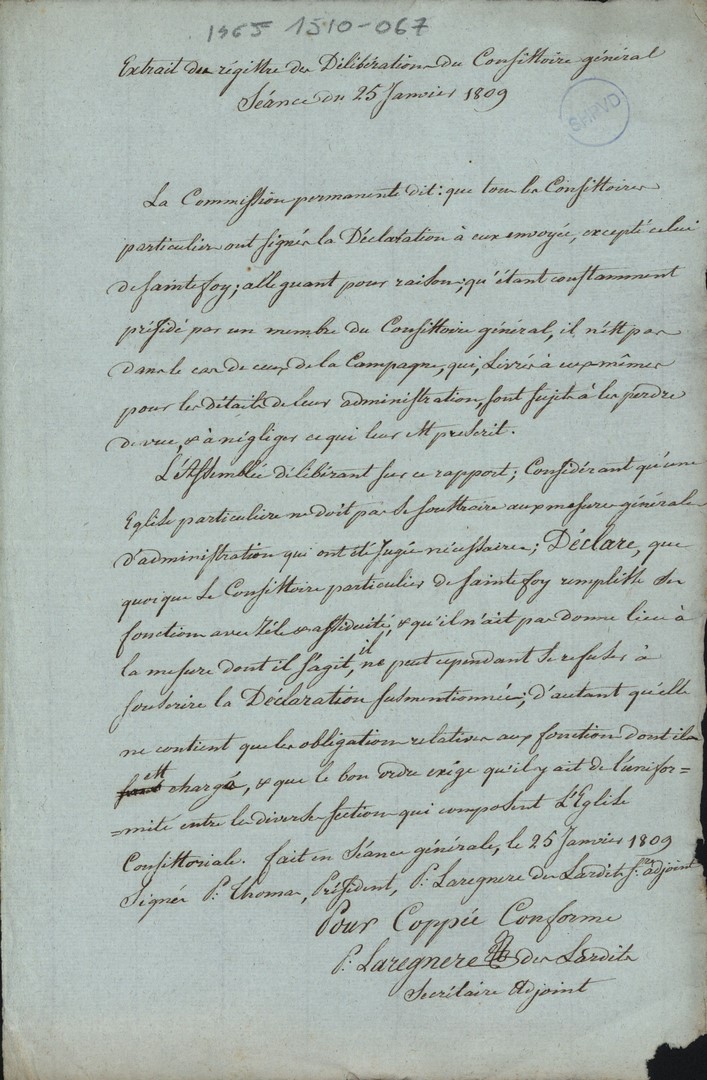 1365 1510-067
Extrait des régistre des Délibérations du Consistoire général
Séance du 25 Janvier 1809
SHPVD
La Commission permanente dit: que tous les Consistoires
particuliers ont signés la Déclaration à eux envoyée, excepté celui
de Sainte foy; alleguant pour raison; qu'étant constamment
présidé par un membre du Consistoire général, il n'est pas
dans le cas de ceux de la Campagne, qui, Livrés à eux mêmes
pour les détails de leur administration, sont sujets à les perdre
de vue, & à négliger ce qui leur est prescrit.
L'Assemblée délibérant sur ce rapport; Considérant qu'une
Eglise particulière ne doit pas se soustraire aux mesures générales
d'administration qui ont été Jugées nécessaires; Déclare, que
quoique le Consistoire particulier de Sainte foy remplisse ses
fonctions avec Zéle & assiduité, & qu'il n'ait pas donne lieu à
la mesure dont il s'agit, il ne peut cependant se refuser à
souscrire la Déclaration susmentionnée; d'autant qu'elle
ne contient que les obligations relatives aux fonctions dont ils
sont est chargé, & que le bon ordre exige qu'il y ait de l'unifor=
=mité entre les diverses sections qui composent L'Eglise
Consistoriale. fait en Séance générale, le 25 Janvier 1809
Signés P. Thomas, Président, P. Laregnere des Lardits S.re adjoint
Pour Coppée Conforme
P. Laregnere des Lardits
Secrétaire Adjoint